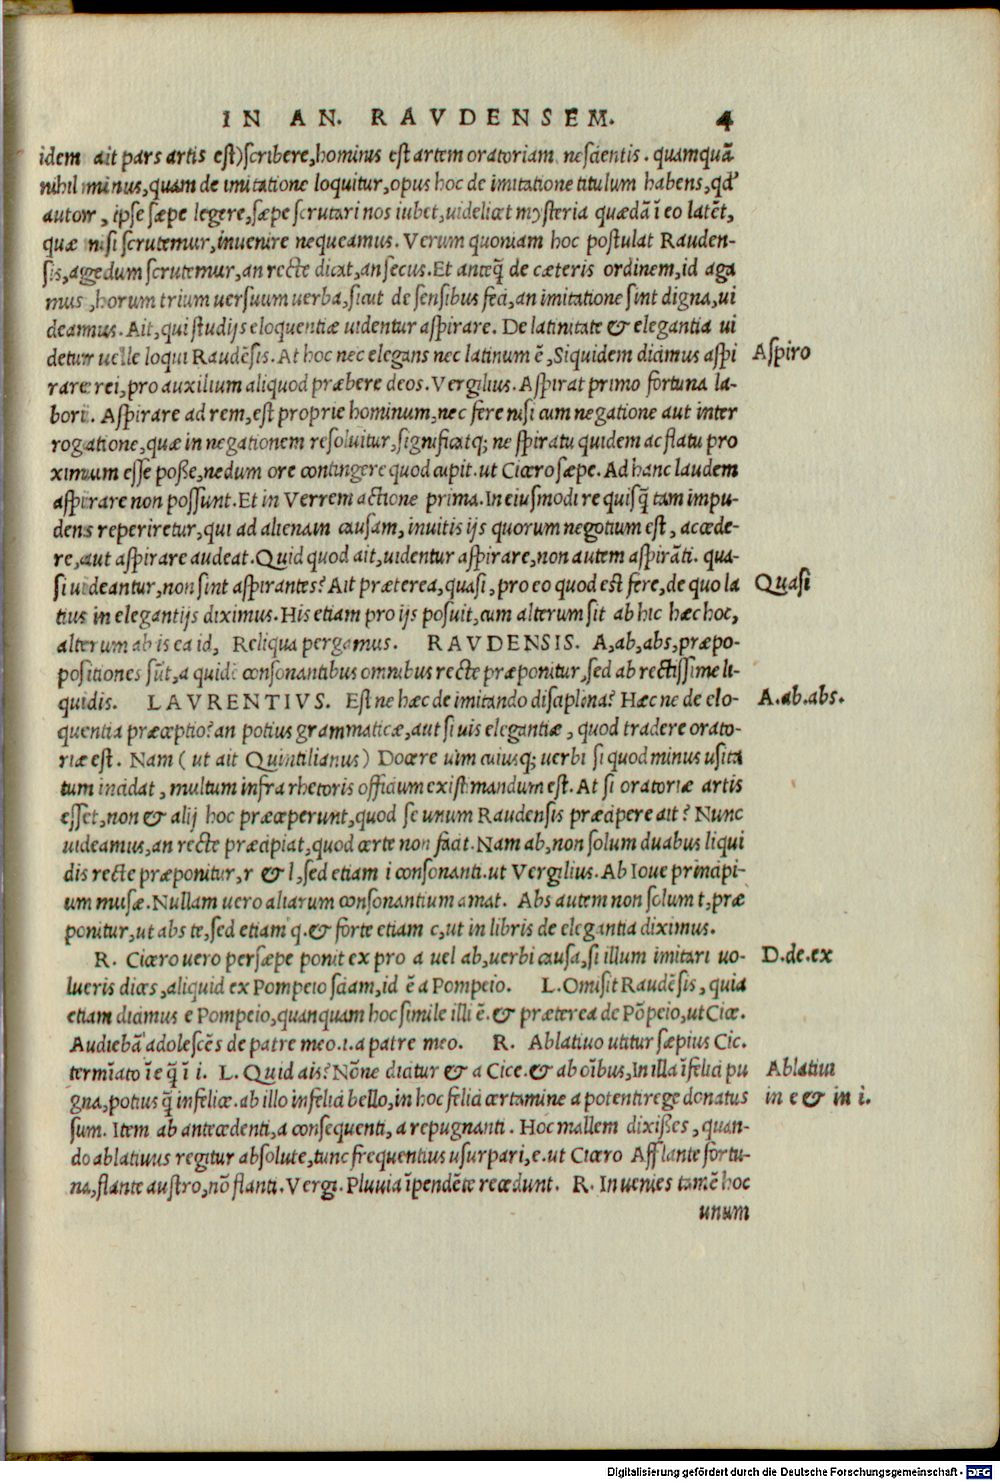 IN AN. RAVDENSEM. 4
idem ait pars artis est) scribere, hominis est artem oratoriam nescientis. quamquā
nihil minus, quam de imitatione loquitur, opus hoc de imitatione titulum habens, qđ
autor, ipse sæpe legere, sæpe scrutari nos iubet, uidelicet mysteria quædā ī eo latēt,
quæ nisi scrutemur, inuenire nequeamus. Verum quoniam hoc postulat Rauden-
sis, agedum scrutemur, an recte dicat, an secus. Et anteq̄ de cæteris ordinem, id aga
mus, horum trium uersuum uerba, sicut de sensibus feci, an imitatione sint digna, ui
deamus. Ait, qui studijs eloquentiæ uidentur aspirare. De latinitate & elegantia ui
detur uelle loqui Raudēsis. At hoc nec elegans nec latinum ē, Siquidem dicimus aspi
Aspiro
rare rei, pro auxilium aliquod præbere deos. Vergilius. Aspirat primo fortuna la-
bori. Aspirare ad rem, est proprie hominum, nec fere nisi cum negatione aut inter
rogatione, quæ in negationem resoluitur, significatq; ne spiratu quidem ac flatu pro
ximum esse posse, nedum ore contingere quod cupit. ut Cicero sæpe. Ad hanc laudem
aspirare non possunt. Et in Verrem actione prima. In eiusmodi re quisq̄ tam impu-
dens reperiretur, qui ad alienam causam, inuitis ijs quorum negotium est, accede-
re, aut aspirare audeat. Quid quod ait, uidentur aspirare, non autem aspirāti. qua-
si uideantur, non sint aspirantes? Ait præterea, quasi, pro eo quod est fere, de quo la
Quasi
tius in elegantijs diximus. His etiam pro ijs posuit, cum alterum sit ab hic hæc hoc,
alterum ab is ea id, Reliqua pergamus. RAVDENSIS. A, ab, abs, præpo-
positiones sūt, a quidē consonantibus omnibus recte præponitur, sed ab rectissime li-
quidis. LAVRENTIVS. Est ne hæc de imitando disciplina? Hæc ne de elo-
A.ab.abs.
quentia præceptio? an potius grammaticæ, aut si uis elegantiæ, quod tradere orato-
riæ est. Nam (ut ait Quintilianus) Docere uim cuiusq; uerbi si quod minus usita
tum incidat, multum infra rhetoris officium existimandum est. At si oratoriæ artis
esset, non & alij hoc præceperunt, quod se unum Raudensis præcipere ait? Nunc
uideamus, an recte præcipiat, quod certe non facit. Nam ab, non solum duabus liqui
dis recte præponitur, r & l, sed etiam i consonanti. ut Vergilius. Ab Ioue principi-
um musæ. Nullam uero aliarum consonantium amat. Abs autem non solum t, præ
ponitur, ut abs te, sed etiam q. & forte etiam c, ut in libris de elegantia diximus.
R. Cicero uero persæpe ponit ex pro a uel ab, uerbi causa, si illum imitari uo-
D.de.ex
lueris dices, aliquid ex Pompeio sciam, id ē a Pompeio. L. Omisit Raudēsis, quia
etiam dicimus e Pompeio, quanquam hoc simile illi ē. & præterea de Pōpeio, ut Cice.
Audiebā adolescēs de patre meo .i. a patre meo. R. Ablatiuo utitur sæpius Cic.
termīato ī e q̄ ī i. L. Quid ais? Nōne dicitur & a Cice. & ab oībus, In illa īfelici pu
Ablatiui
gna, potius q̄ infelice. ab illo infelici bello, in hoc felici certamine a potenti rege donatus
in e & in i.
sum. Item ab antecedenti, a consequenti, a repugnanti. Hoc mallem dixisses, quan-
do ablatiuus regitur absolute, tunc frequentius usurpari, e. ut Cicero Afflante fortu-
na, flante austro, nō flanti. Vergi. Pluuia īpendēte recedunt. R. Inuenies tamē hoc
unum
Digitalisierung gefördert durch die Deutsche Forschungsgemeinschaft - DFG